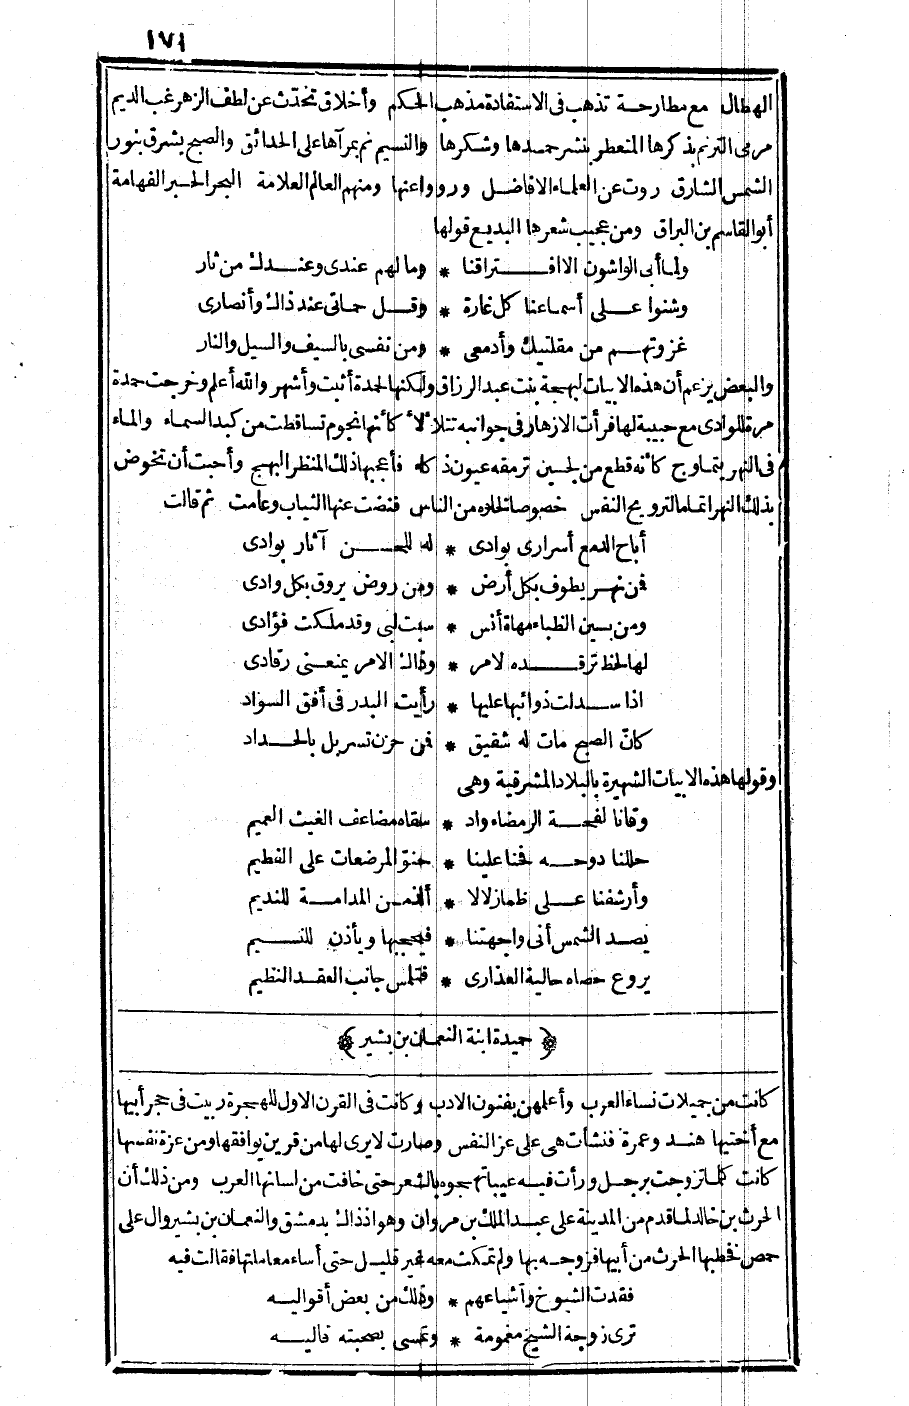 ١٧١
الهطال مع مطارحة تذهب فى الاستفادة مذهب الحكم وأخلاق تحدثت عن لطف الزهر غب الديم
مر فى الترنم بذكرها المتعطر بنشر حمدها وشكرها والنسيم نم بمرآها على الحدائق والصبح يشرق بنور
الشمس الشارق روت عن العلماء الافاضل ورووا عنها ومنهم العالم العلامة البحر الحبر الفهامة
أبو القاسم بن البراق ومن عجيب شعرها البديع قولها
ولما أبى الواشون الا افتراقنا * وما لهم عندى وعندك من ثار
وشنوا على أسماعنا كل غارة * وقل حماتى عند ذاك وأنصارى
غزوتهم من مقلتيك وأدمعى * ومن نفسى بالسيف والسيل والنار
والبعض يزعم أن هذه الابيات لبهجة بنت عبد الرزاق ولكنها لحمدة أثبت وأشهر والله أعلم وخرجت حمدة
مرة للوادى مع حبيبة لها فرأت الازهار فى جوانبه تتلألأ كأنها نجوم تساقطت من كبد السماء والماء
فى النهر يتماوج كأنه قطع من لجين ترمقه عيون ذكاء فأعجبها ذلك المنظر البهيج وأحبت أن تخوض
بذلك النهر اتماما لترويح النفس خصوصا لخلوه من الناس فنضت عنها الثياب وعامت ثم قالت
أباح الدمع أسرارى بوادى * له للحسن آثار بوادى
فمن نهر يطوف بكل أرض * ومن روض يروق بكل وادى
ومن بين الظباء مهاة أنس * سبت لبى وقد ملكت فؤادى
لها لحظ ترقده لامر * وذاك الامر يمنعنى رقادى
اذا سدلت ذوائبها عليها * رأيت البدر فى أفق السواد
كانّ الصبح مات له شقيق * فمن حزن تسربل بالحداد
وقولها هذه الابيات الشهيرة بالبلاد المشرقية وهى
وقانا لفحة الرمضاء واد * سقاه مضاعف الغيث العميم
حللنا دوحه فحنا علينا * حنو المرضعات على الفطيم
وأرشفنا على ظما زلالا * ألذ من المدامة للنديم
يصد الشمس أنى واجهتنا * فيحجبها ويأذن للنسيم
يروع حصاه حالية العذارى * فتلمس جانب العقد النظيم
﴿حميدة ابنة النعمان بن بشير﴾
كانت من جميلات نساء العرب وأعلمهن بفنون الادب وكانت فى القرن الاول للهجرة ربيت فى حجر أبيها
مع أختيها هند وعمرة فنشأت هى على عز النفس وصارت لا يرى لها من قرين يوافقها ومن عزة نفسها
كانت كلما تزوجت برجل ورأت فيه عيبا تهجوه بالشعر حتى خافت من لسانها العرب ومن ذلك أن
الحرث بن خالد لما قدم من المدينة على عبد الملك بن مروان وهو اذ ذاك بدمشق والنعمان بن بشير وال على
حمص فخطبها الحرث من أبيها فزوجه بها ولم تمكث معه غير قليل حتى أساء معاملتها فقالت فيه
فقدت الشيوخ وأشياعهم * وذلك من بعض أقواليه
ترى زوجة الشيخ مغمومة * وتمسى بصحبته قاليه